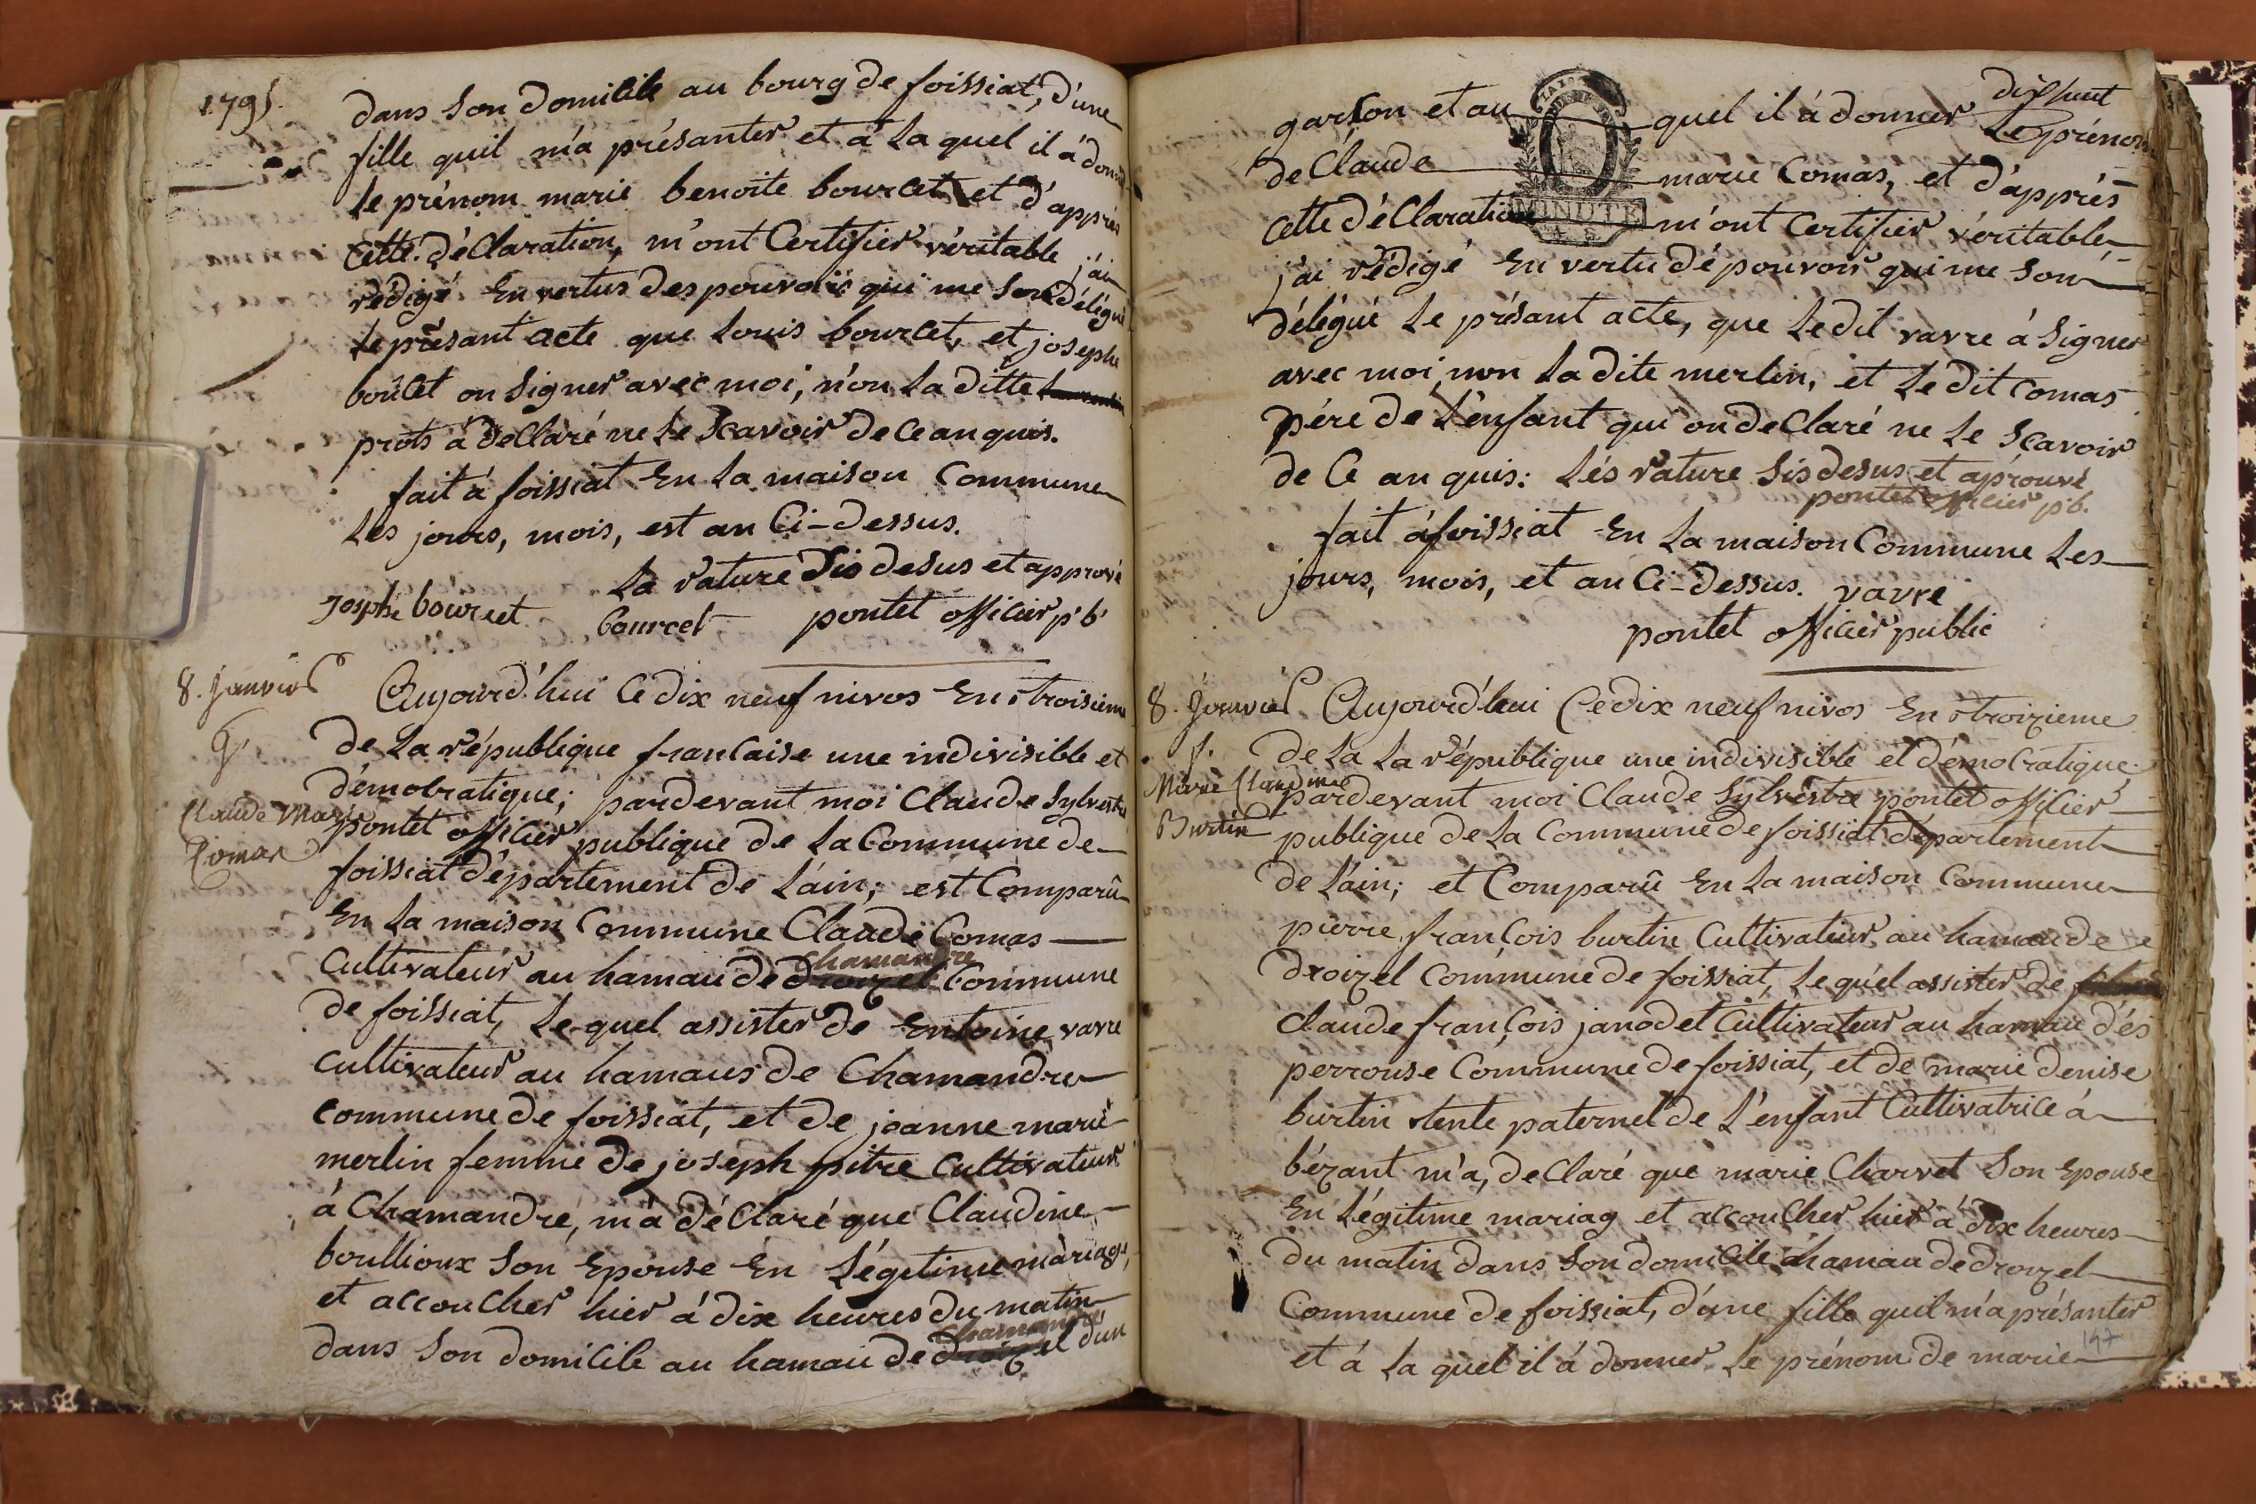 1795
dans son domicile au bourg de foissiat, d'une
fille quil m'a présanter et à la quel il a donné
le prénom marie benoite bourcet et d'apprés
cette déclaration, m'ont Certifier véritable j'ai
rédigé En vertus des pouvoir qui me sont délégué
le présant acte que louis bourcet, et joseph
boucet on signer avec moi, n'on la ditte
prots à declaré ne le scavoir de ce anquis.
fait à foissiat En la maison Commune
les jours, mois, est an Ci-dessus.
la rature sis desus et apprové
Josphe bourcet bourcet pontet officier p'b'
8. Janvier
G.
Claude Marie
Comas
Aujourd'hui Ce dix neuf nivos En troisieme
de la république francaise une indivisible et
démobratique; pardevant moi Claude Sylvestre
pontet officier publique de la Commune de
foissiat département de l'ain; est Comparû
En la maison Commune Claude Comas
Chamandre
Cultivateur au hamau de droizel Commune
de foissiat, le quel assister de Entoine vavre
cultivateur au hamaus de Chamandre
commune de foissiat, et de jeanne marie
merlin femme de joseph pitre cultivateur
à Chamandré, m'a déclaré que Claudine
boullioux son Epouse En légitime mariage,
et accoucher hier à dix heures du matin
Chamandré
dans son domicile au hamau de droizel d'un
garson et au quel il à donner le prénom
de Claude marie Comas, et d'apprés
cette déclaration m'ont certifier véritable
j'ai rédigé En vertu dé pouvoir qui me son
délégué le présant acte, que le dit vavre à signer
avec moi non la dite merlin, et le dit comas
pére de l'enfant qui on declaré ne le scavoir
de Ce an quis: lés rature sis desus et aprouvé
pontet officier p'b.
fait à foissiat En la maison Commune les
jours, mois, et an Ci-dessus. vavre
pontet officier public
MINUTE
8. Janvier
f.
Marie Claudine
Burtin
Aujourd'hui Ce dix neuf nivos En troizieme
de la la république une indivisible et démobratique;
pardevant moi Claude Sylvestre pontet officier
publique de la Commune de foissiat département
de l'ain; et Comparû En la maison Commune
pierre françois burtin Cultivateur au hamau de
droizel Commune de foissiat, le quel assister de
claude françois janodet Cultivateur au hamau dés
perrouse Commune de foissiat, et de marie denise
burtin tente paternel de l'enfant Cultivatrice à
bézant m'a, declaré que marie Charvet son Epouse
En légitime mariag et accoucher hier à dix heures
du matin dans son domicile ahamau de droizel
Commune de foissiat, d'une fille quil m'a présanter
et à la quel il à donner le prénom de marie
147